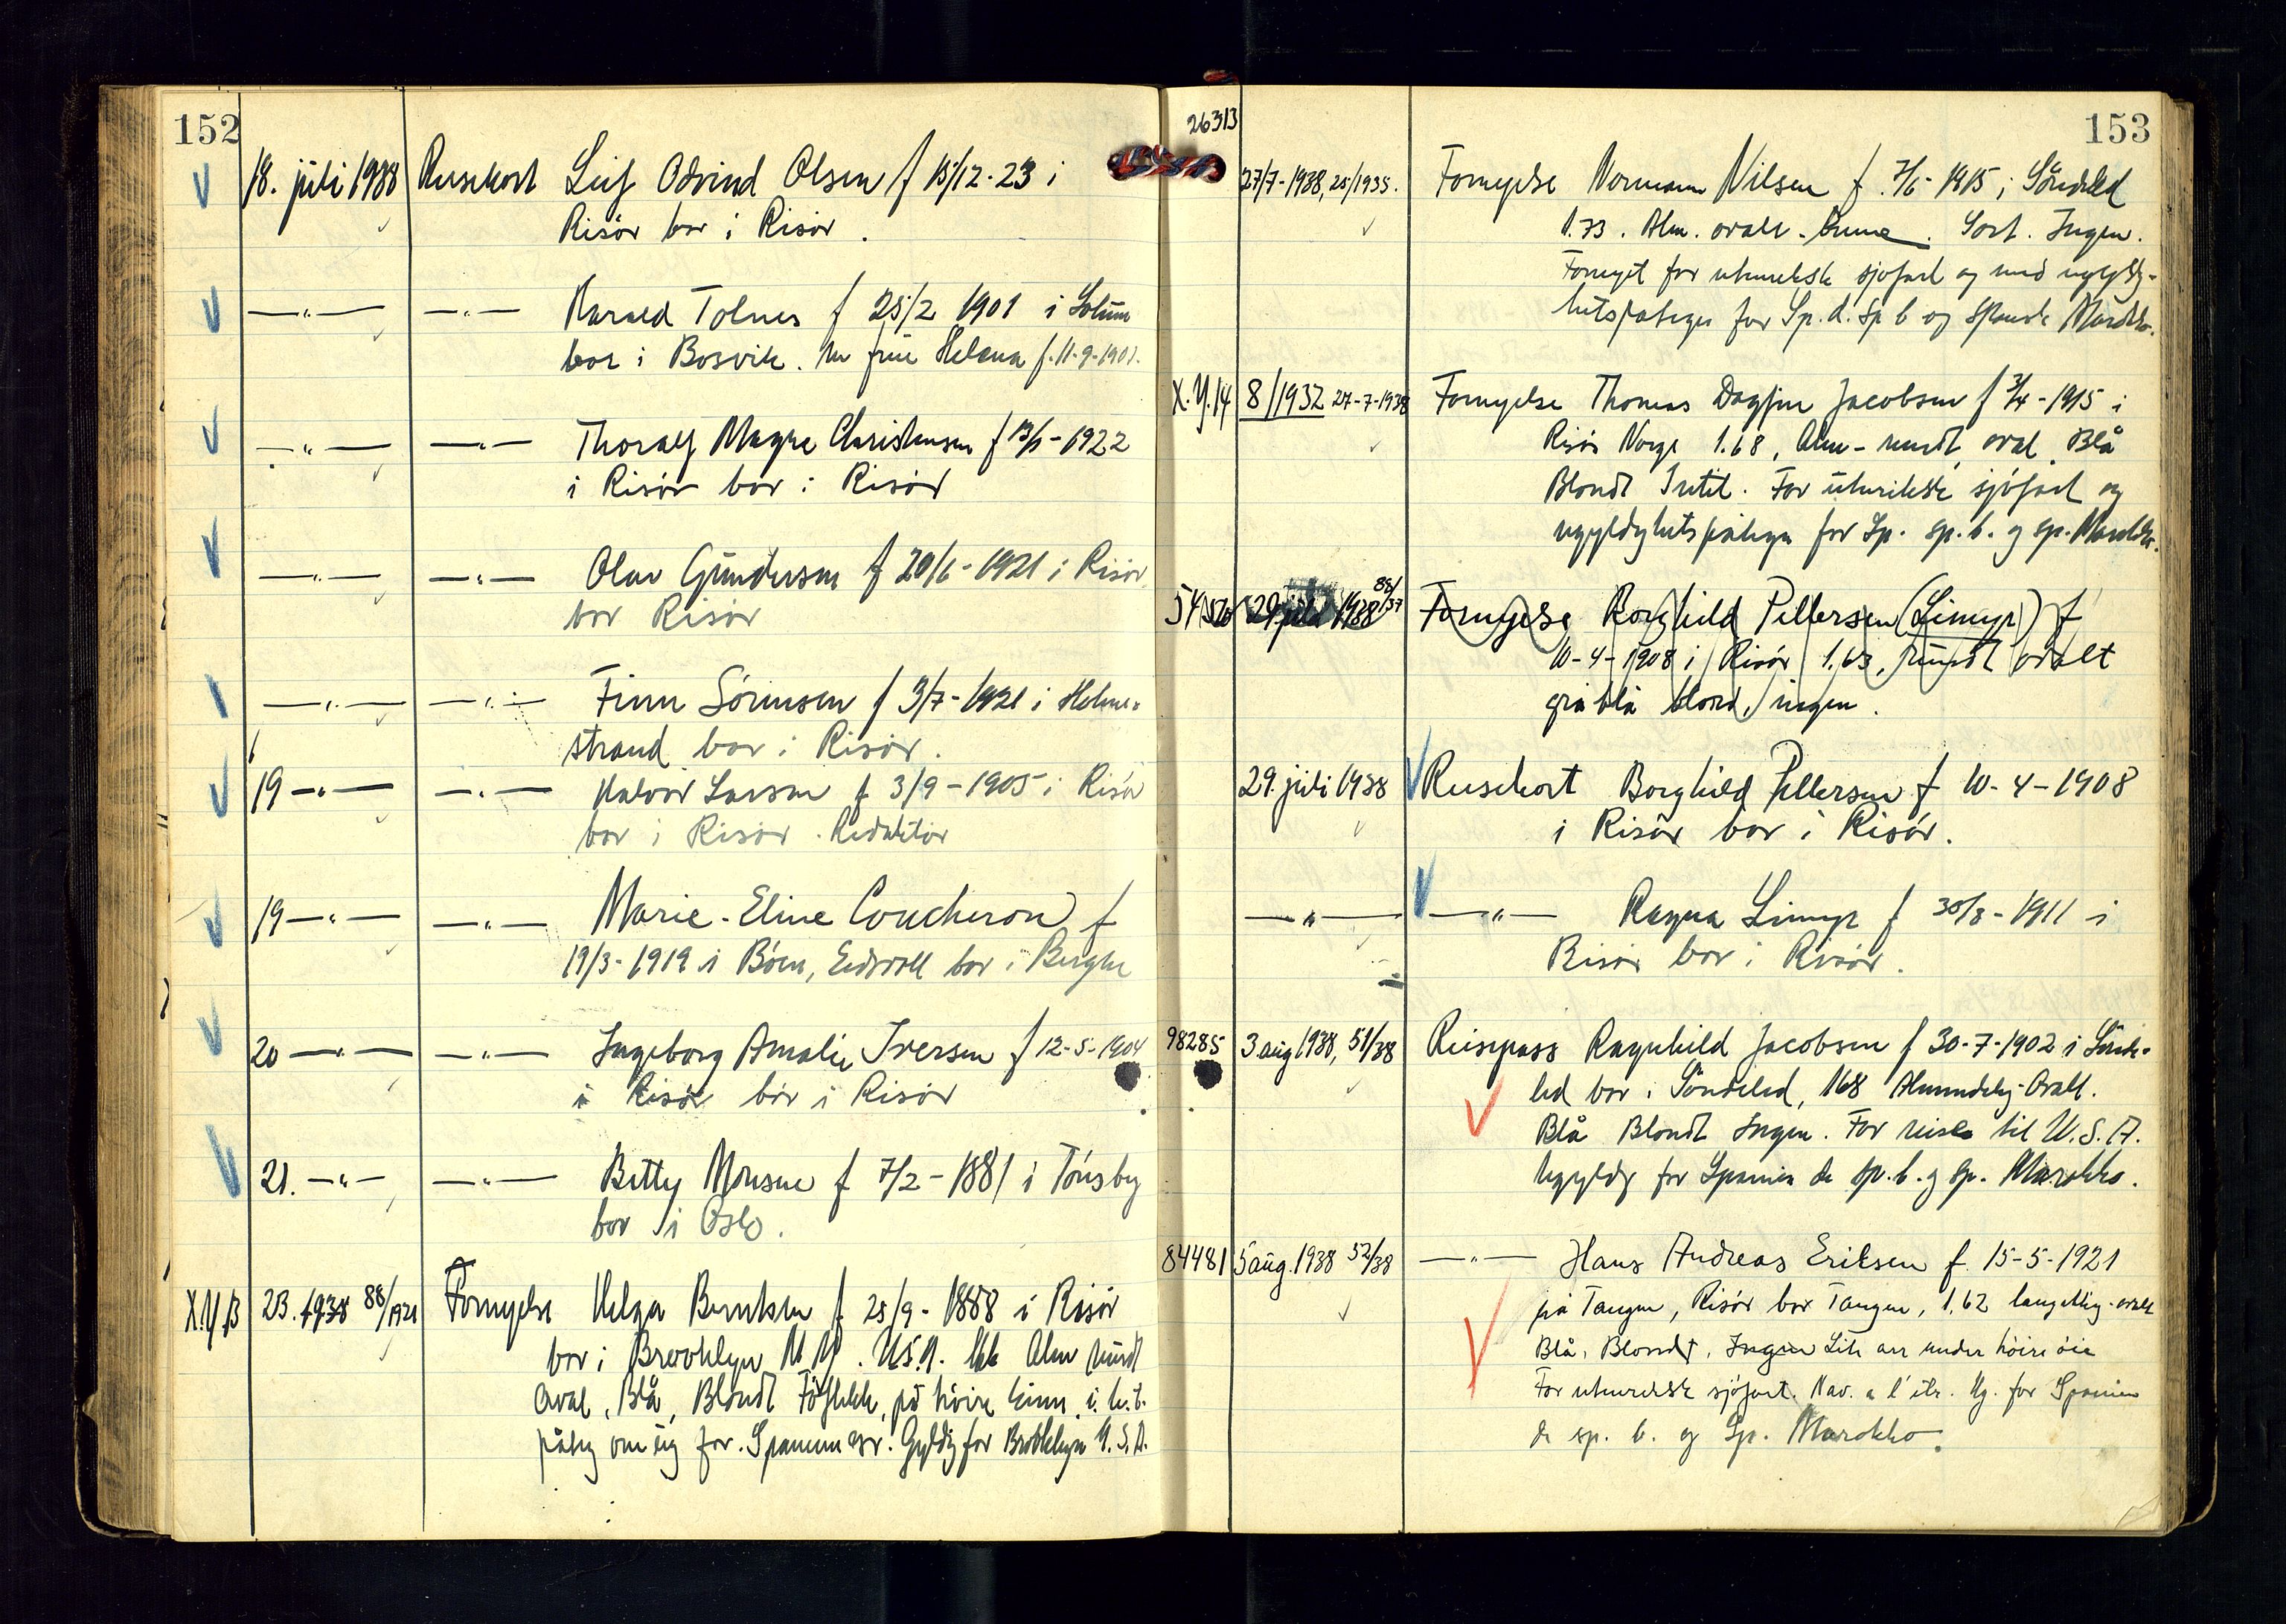 152
18. juli 1938 Reisekort Leif Odvind Olsen f 15/12-23 i
Risör bor i Risör.
—"— —"— Harald Tolnes f 25/2 1901 i Solum
bor i Bosvik. m frue Helena f. 11-9-1901.
—"— —"— Thoralf Magne Christensen f 1922
i Risör bor i Risör
—"— —"— Olav Gundersen f 20/6-1921 i Risör
bor Risör
—"— —"— Finn Sörensen f 3/7-1921 i Holme-
strand bor i Risör.
19 —"— —"— Halvor Larsen f 3/9-1905 i Risör
bor i Risör. Redaktör
19 —"— —"— Marie-Eline Coucheron f
19/3-1919 i Böen, Eidsvoll bor i Bergen
20 —"— —"— Ingeborg Amalie Iversen f 12-5-1904
i Risör bor i Risör
21. —"— —"— Betty Monsen f 7/2-1881 i Tönsberg
bor i Oslo.
X.Y.13 23. 1938 88/1921 Fornyelse Helga Berntsen f 25/9-1888 i Risör
bor i Brooklyn N.Y. U.S.A. Alm rundt
Oval, Blå, Blondt Föflekk, på höire kinn.
påteg om ug for. Spanien osv. Gyldig for Brooklyn U.S.A.
153
26313
27/7-1938, 25/1935. Fornyelse Normann Nilsen f. 7/6-1915 i Söndeled
1.73. Alm. ovalt. Brune. Sort. Ingen.
Fornyet for utenriksk sjöfart og med ugyldig-
hetspåtegn for Sp. d. Sp b og Spansk Marokko.
X.Y.14 8/1932 27-7-1938 Fornyelse Thomas Dagfinn Jacobsen f 3/4-1915 i
Risör Norge 1.68, Alm-rundt oval. Blå
Blondt Intet. For utenriksk sjöfart og
ugyldighetspåtegn for Sp. sp. b. og sp. Marokko.
29 juli 1938 88/37 Fornyelse Borghild Pettersen (Limyr) f
10-4-1908 i Risör 1,63, rundt ovalt
grå blå blond, ingen.
29. juli 1938 Reisekort Borghild Pettersen f 10-4-1908
i Risör bor i Risör.
—"— —"— Ragna Limyr f 30/8-1911 i
Risör bor i Risör.
98285 3 aug 1938, 51/38 Reisepass Ragnhild Jacobsen f 30-7-1902 i Sönde-
led bor i Söndeled, 168 Almindelig-Ovalt.
Blå Blondt Ingen. For reise til U.S.A.
Ugyldig for Spania de sp. b. og Sp. Marokko.
84481 5 aug. 1938 52/38 —"— Hans Andreas Eriksen f. 15-5-1921
på Tangen, Risör bor Tangen, 1,62 langaktig-ovalt
Blå, Blondt, Ingen Lite arr under höire öie
For utenriksk sjöfart. Nav. a l'etr. Ug. for Spanien
de sp. b. og Sp. Marokko.